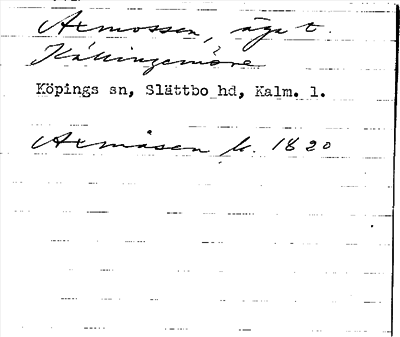 Axmossen, äga t.
Källingemöre
Köpings sn, Slättbo hd, Kalm. l.
Axmåsen k. 1820